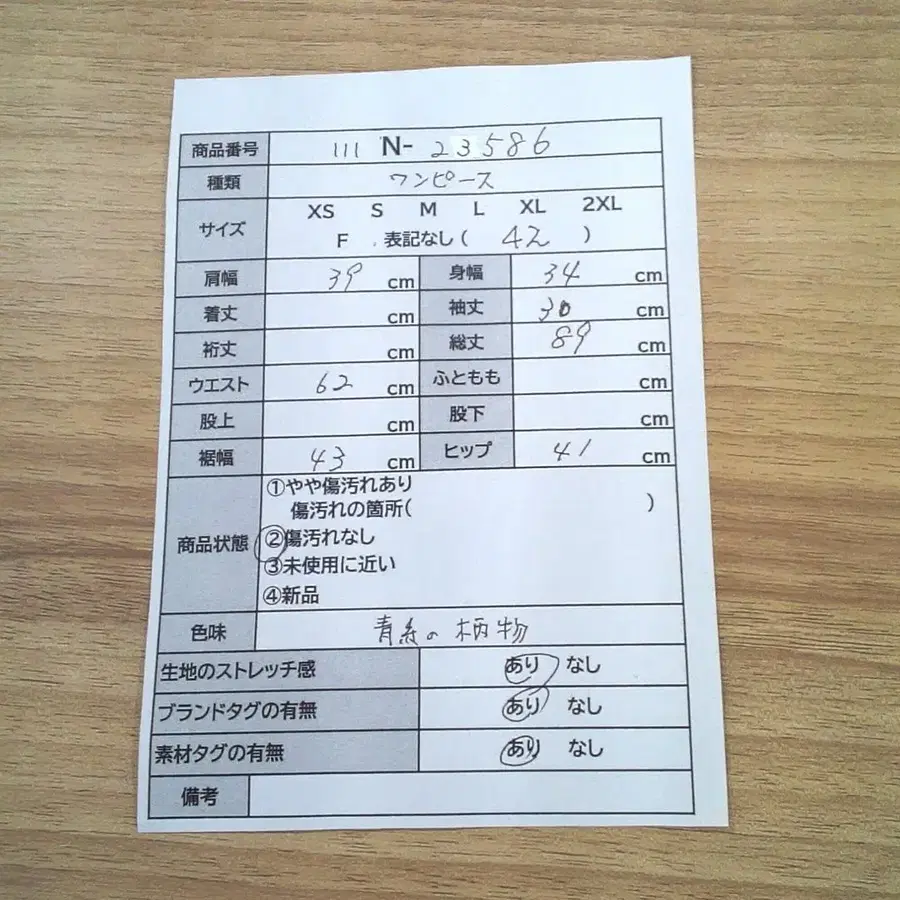 商品番号 111 N- 23586
種類 ワンピース
サイズ XS S M L XL 2XL
F . 表記なし( 42 )
肩幅 39 cm 身幅 34 cm
着丈 cm 袖丈 30 cm
裄丈 cm 総丈 89 cm
ウエスト 62 cm ふともも cm
股上 cm 股下 cm
裾幅 43 cm ヒップ 41 cm
商品状態 ①やや傷汚れあり
傷汚れの箇所( )
②傷汚れなし
③未使用に近い
④新品
色味 青系の柄物
生地のストレッチ感 あり なし
ブランドタグの有無 あり なし
素材タグの有無 あり なし
備考